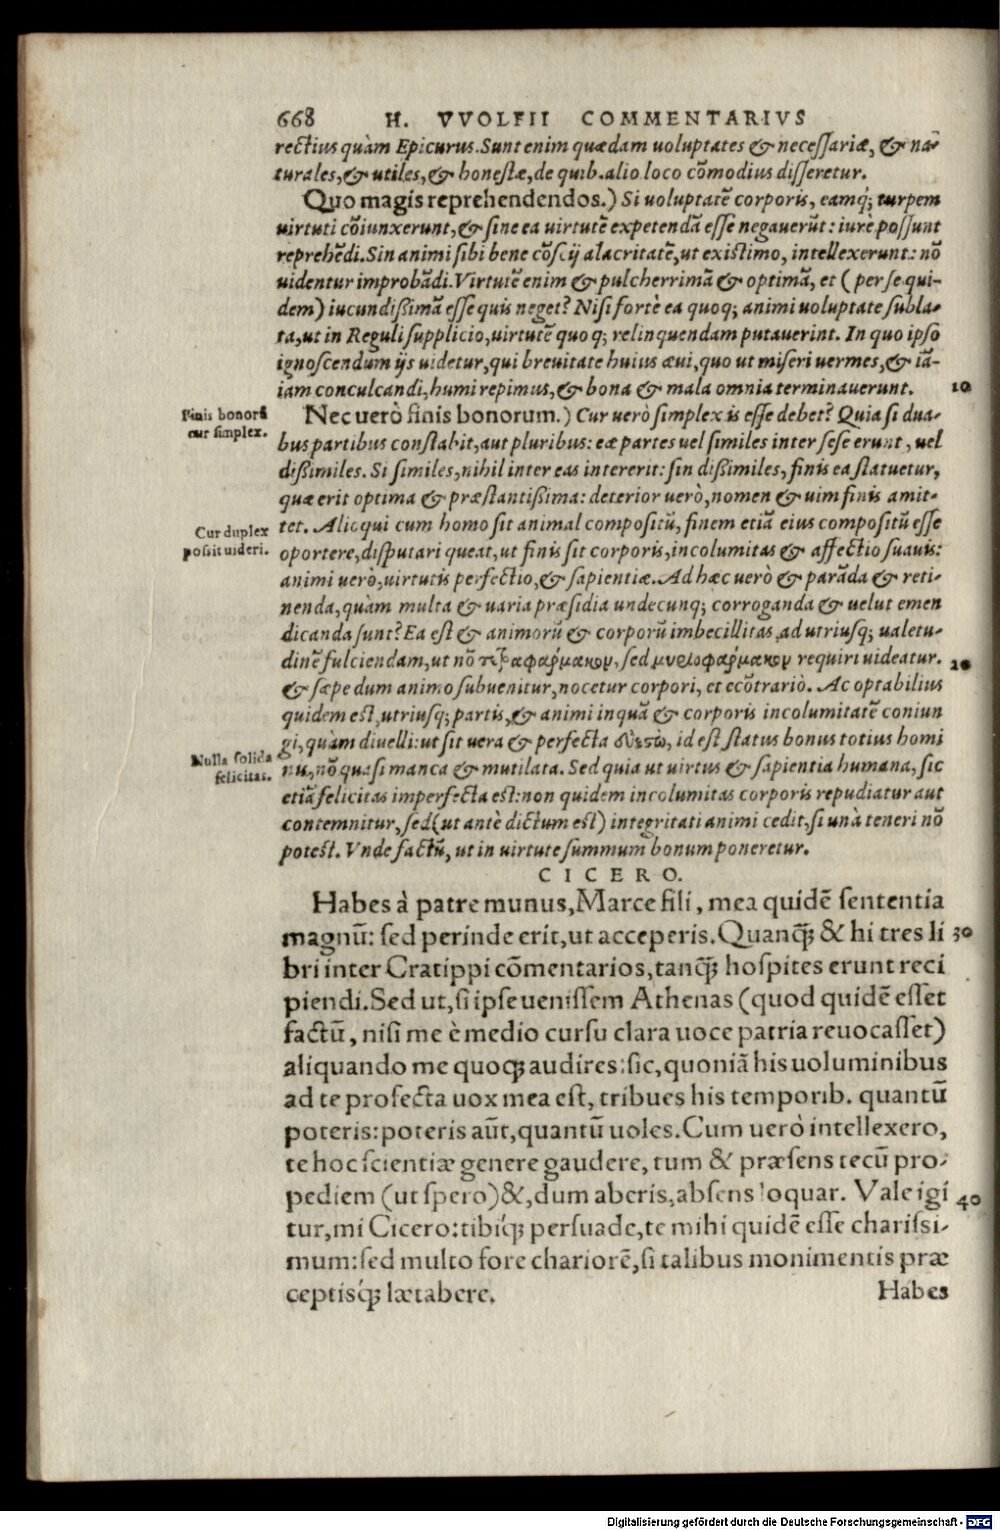 668 H. VVOLFII COMMENTARIVS
rectius quàm Epicurus. Sunt enim quædam uoluptates & necessariæ, & na-
turales, & utiles, & honestæ, de quib. alio loco cōmodius disseretur.
Quo magis reprehendendos.) Si uoluptatē corporis, eamq́; turpem
uirtuti cōiunxerunt, & sine ea uirtutē expetendā esse negauerūt: iure possunt
reprehēdi. Sin animi sibi bene cōscij alacritatē, ut existimo, intellexerunt: nō
uidentur improbādi. Virtutē enim & pulcherrimā & optimā, et (per se qui-
dem) iucundißimā esse quis neget? Nisi fortè ea quoq; animi uoluptate subla-
ta, ut in Reguli supplicio, uirtutē quoq; relinquendam putauerint. In quo ipso
ignoscendum ijs uidetur, qui breuitate huius æui, quo ut miseri uermes, & iā-
iam conculcandi, humi repimus, & bona & mala omnia terminauerunt. 10
Finis bonorū
cur simplex.
Nec uerò finis bonorum.) Cur uerò simplex is esse debet? Quia si dua-
bus partibus constabit, aut pluribus: eæ partes uel similes inter sese erunt, uel
dißimiles. Si similes, nihil inter eas intererit: sin dißimiles, finis ea statuetur,
quæ erit optima & præstantißima: deterior uerò, nomen & uim finis amit-
Cur duplex
possit uideri.
tet. Alioqui cum homo sit animal compositū, finem etiā eius compositū esse
oportere, disputari queat, ut finis sit corporis, incolumitas & affectio suauis:
animi uerò, uirtutis perfectio, & sapientiæ. Ad hæc uerò & parāda & reti-
nenda, quàm multa & uaria præsidia undecunq; corroganda & uelut emen
dicanda sunt? Ea est & animorū & corporū imbecillitas ad utriusq; ualetu-
dinē fulciendam, ut nō τετραφαρμακον, sed μυελοφαρμακον requiri uideatur. 20
& sæpe dum animo subuenitur, nocetur corpori, et ecōtrariò. Ac optabilius
quidem est utriusq; partis, & animi inquā & corporis incolumitatē coniun
gi, quàm diuelli: ut sit uera & perfecta , id est status bonus totius homi
Nulla solida
felicitas.
nis, nō quasi manca & mutilata. Sed quia ut uirtus & sapientia humana, sic
etiā felicitas imperfecta est: non quidem incolumitas corporis repudiatur aut
contemnitur, sed (ut antè dictum est) integritati animi cedit, si unà teneri nō
potest. Vnde factū, ut in uirtute summum bonum poneretur.
CICERO.
Habes à patre munus, Marce fili, mea quidē sententia
magnū: sed perinde erit, ut acceperis. Quanq̄; & hi tres li 30
bri inter Cratippi cōmentarios, tanq̄; hospites erunt reci
piendi. Sed ut, si ipse uenissem Athenas (quod quidē esset
factū, nisi me è medio cursu clara uoce patria reuocasset)
aliquando me quoq; audires: sic, quoniā his uoluminibus
ad te profecta uox mea est, tribues his temporib. quantū
poteris: poteris aūt, quantū uoles. Cum uerò intellexero,
te hoc scientiæ genere gaudere, tum & præsens tecū pro-
pediem (ut spero) &, dum aberis, absens loquar. Vale igi 40
tur, mi Cicero: tibiq́; persuade, te mihi quidē esse charissi-
mum: sed multo fore chariorē, si talibus monimentis præ
ceptisq́; lætabere.
Habes
Digitalisierung gefördert durch die Deutsche Forschungsgemeinschaft - DFG